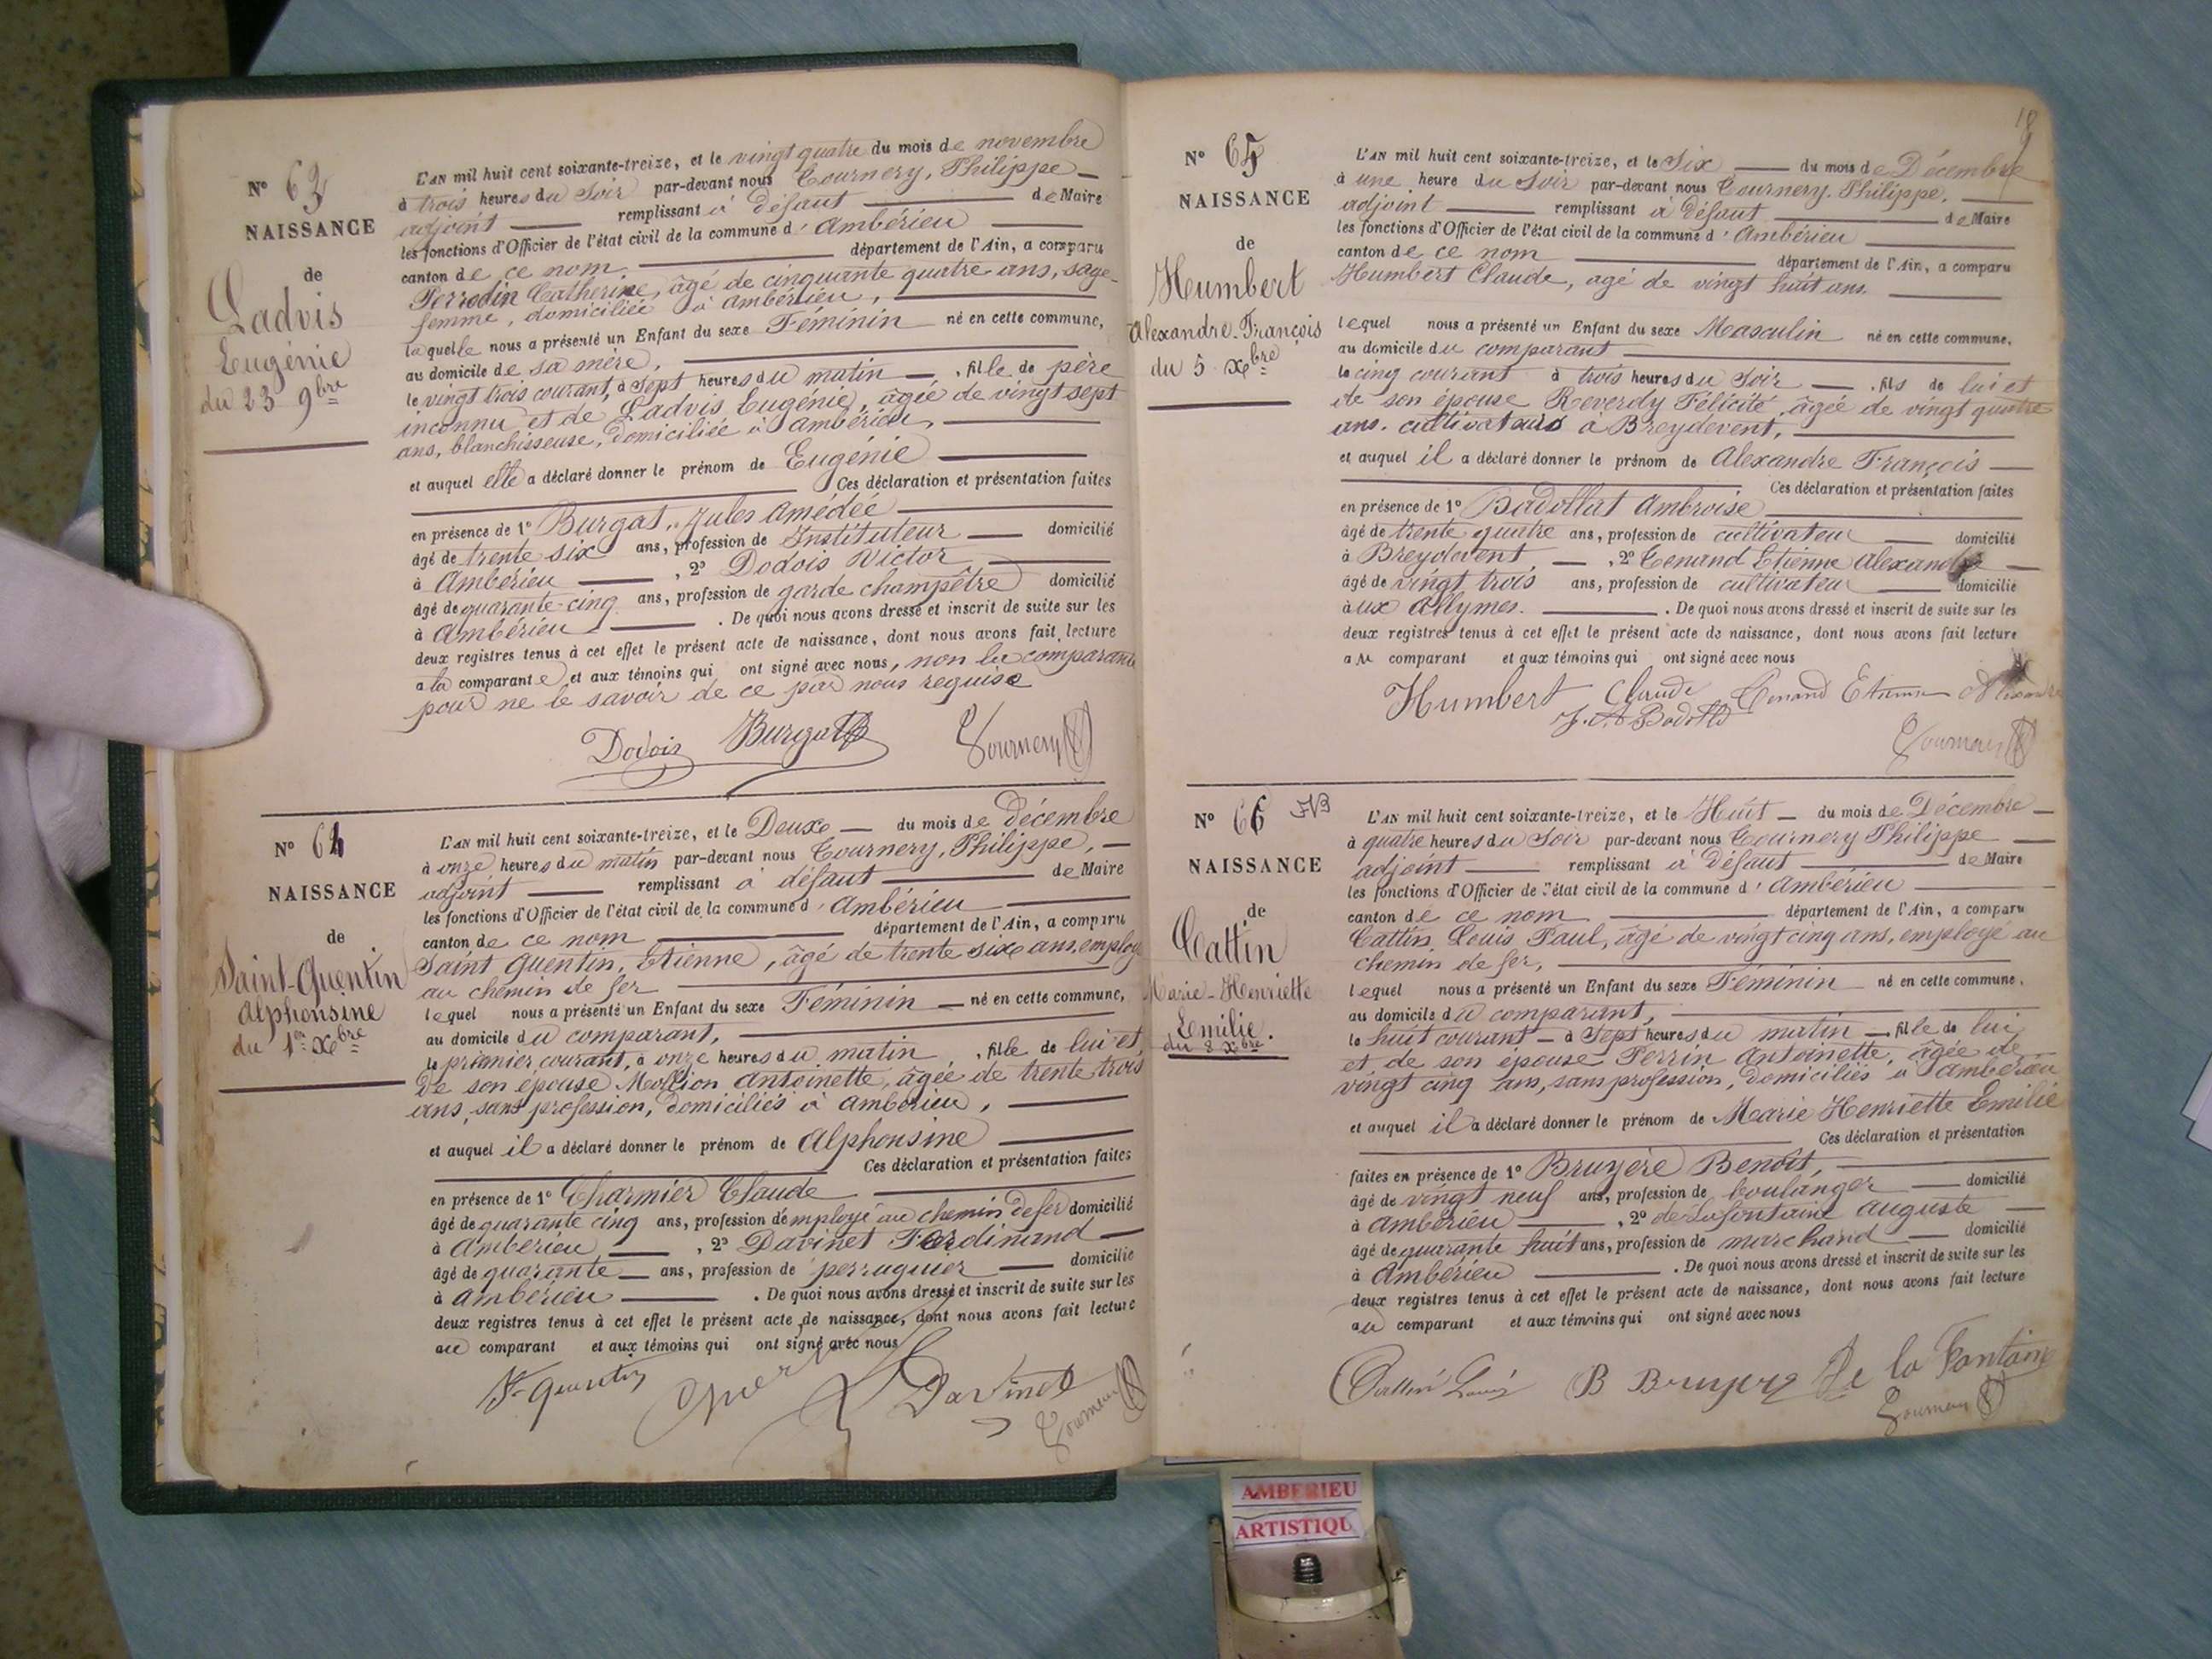 N° 63
NAISSANCE
de
Ladvis
Eugénie
du 23 9bre
L'AN mil huit cent soixante-treize, et le vingt quatre du mois de novembre
à trois heures du Soir par-devant nous Tournery, Philippe
adjoint remplissant à défaut de Maire
les fonctions d'Officier de l'état civil de la commune d'Ambérieu
canton de ce nom département de l'Ain, a comparu
Perrodin Catherine, âgé de cinquante quatre ans, sage-
femme, domiciliée à Ambérieu,
laquelle nous a présenté un Enfant du sexe Féminin né en cette commune,
au domicile de sa mère,
le vingt trois courant, à Sept heures du matin, fille de père
inconnu et de Ladvis Eugénie, âgée de vingt sept
ans, blanchisseuse, domiciliée à Ambérieu,
et auquel elle a déclaré donner le prénom de Eugénie
Ces déclaration et présentation faites
en présence de 1° Burgat, Jules Amédée
âgé de trente six ans, profession de Instituteur domicilié
à Ambérieu, 2° Dodois Victor
âgé de quarante-cinq ans, profession de garde champêtre domicilié
à Ambérieu. De quoi nous avons dressé et inscrit de suite sur les
deux registres tenus à cet effet le présent acte de naissance, dont nous avons fait lecture
a la comparante et aux témoins qui ont signé avec nous, non la comparante
pour ne le savoir de ce par nous requise
Dodois Burgat Tournery
N° 64
NAISSANCE
de
Saint-Quentin
Alphonsine
du 1er Xbre
L'AN mil huit cent soixante-treize, et le Deux du mois de Décembre
à onze heures du matin par-devant nous Tournery, Philippe,
adjoint remplissant à défaut de Maire
les fonctions d'Officier de l'état civil de la commune d'Ambérieu
canton de ce nom département de l'Ain, a comparu
Saint Quentin, Etienne, âgé de trente six ans, employé
au chemin de fer
lequel nous a présenté un Enfant du sexe Féminin né en cette commune,
au domicile du comparant,
le premier courant, à onze heures du matin, fille de lui et
de son épouse Antoinette, âgée de trente trois
ans, sans profession, domiciliés à Ambérieu,
et auquel il a déclaré donner le prénom de Alphonsine
Ces déclaration et présentation faites
en présence de 1° Charmier Claude
âgé de quarante cinq ans, profession d'employé au chemin de fer domicilié
à Ambérieu, 2° Davinet Ferdinand
âgé de quarante ans, profession de perruquier domicilié
à Ambérieu. De quoi nous avons dressé et inscrit de suite sur les
deux registres tenus à cet effet le présent acte de naissance, dont nous avons fait lecture
au comparant et aux témoins qui ont signé avec nous
St Quentin Davinet Tournery
N° 65
NAISSANCE
de
Humbert
Alexandre-François
du 5 Xbre
L'AN mil huit cent soixante-treize, et le Six du mois de Décembre
à une heure du Soir par-devant nous Tournery, Philippe,
adjoint remplissant à défaut de Maire
les fonctions d'Officier de l'état civil de la commune d'Ambérieu
canton de ce nom département de l'Ain, a comparu
Humbert Claude, âgé de vingt huit ans
lequel nous a présenté un Enfant du sexe Masculin né en cette commune,
au domicile du comparant
le cinq courant à trois heures du Soir, fils de lui et
de son épouse Reverdy Félicité, âgée de vingt quatre
ans, cultivateurs a Breydevent,
et auquel il a déclaré donner le prénom de Alexandre François
Ces déclaration et présentation faites
en présence de 1° Badollat Ambroise
âgé de trente quatre ans, profession de cultivateur domicilié
à Breydevent, 2° Tenand Etienne Alexandre
âgé de vingt trois ans, profession de cultivateur domicilié
à ux Allymes. De quoi nous avons dressé et inscrit de suite sur les
deux registres tenus à cet effet le présent acte de naissance, dont nous avons fait lecture
au comparant et aux témoins qui ont signé avec nous
Humbert Claude Tenand Etienne Alexandre
Tournery
N° 66
NAISSANCE
de
Cattin
Marie-Henriette
Emilie.
du 8 Xbre.
L'AN mil huit cent soixante-treize, et le Huit du mois de Décembre
à quatre heures du Soir par-devant nous Tournery Philippe
adjoint remplissant à défaut de Maire
les fonctions d'Officier de l'état civil de la commune d'Ambérieu
canton de ce nom département de l'Ain, a comparu
Cattin, Louis Paul, âgé de vingt cinq ans, employé au
chemin de fer,
lequel nous a présenté un Enfant du sexe Féminin né en cette commune,
au domicile du comparant,
le huit courant à Sept heures du matin, fille de lui
et de son épouse Perrin Antoinette, âgée de
vingt cinq ans, sans profession, domiciliés à Ambérieu
et auquel il a déclaré donner le prénom de Marie Henriette Emilie
Ces déclaration et présentation
faites en présence de 1° Bruyère Benoît,
âgé de vingt neuf ans, profession de boulanger domicilié
à Ambérieu, 2° de Lafontaine Auguste
âgé de quarante huit ans, profession de marchand domicilié
à Ambérieu. De quoi nous avons dressé et inscrit de suite sur les
deux registres tenus à cet effet le présent acte de naissance, dont nous avons fait lecture
au comparant et aux témoins qui ont signé avec nous
Cattin Louis B Bruyere De la Fontaine
Tournery
AMBERIEU
ARTISTIQU